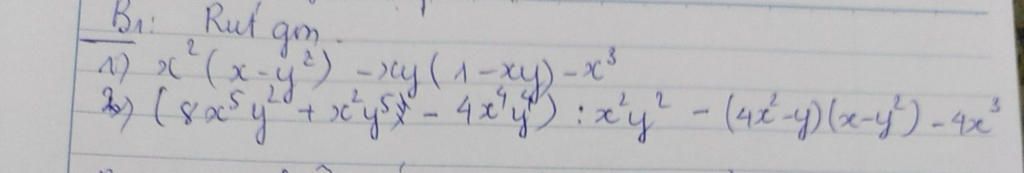 B1: Rút gọn.
1) x²(x-y²) - xy(1-xy) - x³
2) (8x⁵y² + x²y⁵ - 4x⁴y⁴) : x²y² - (4x²-y)(x-y²) - 4x³